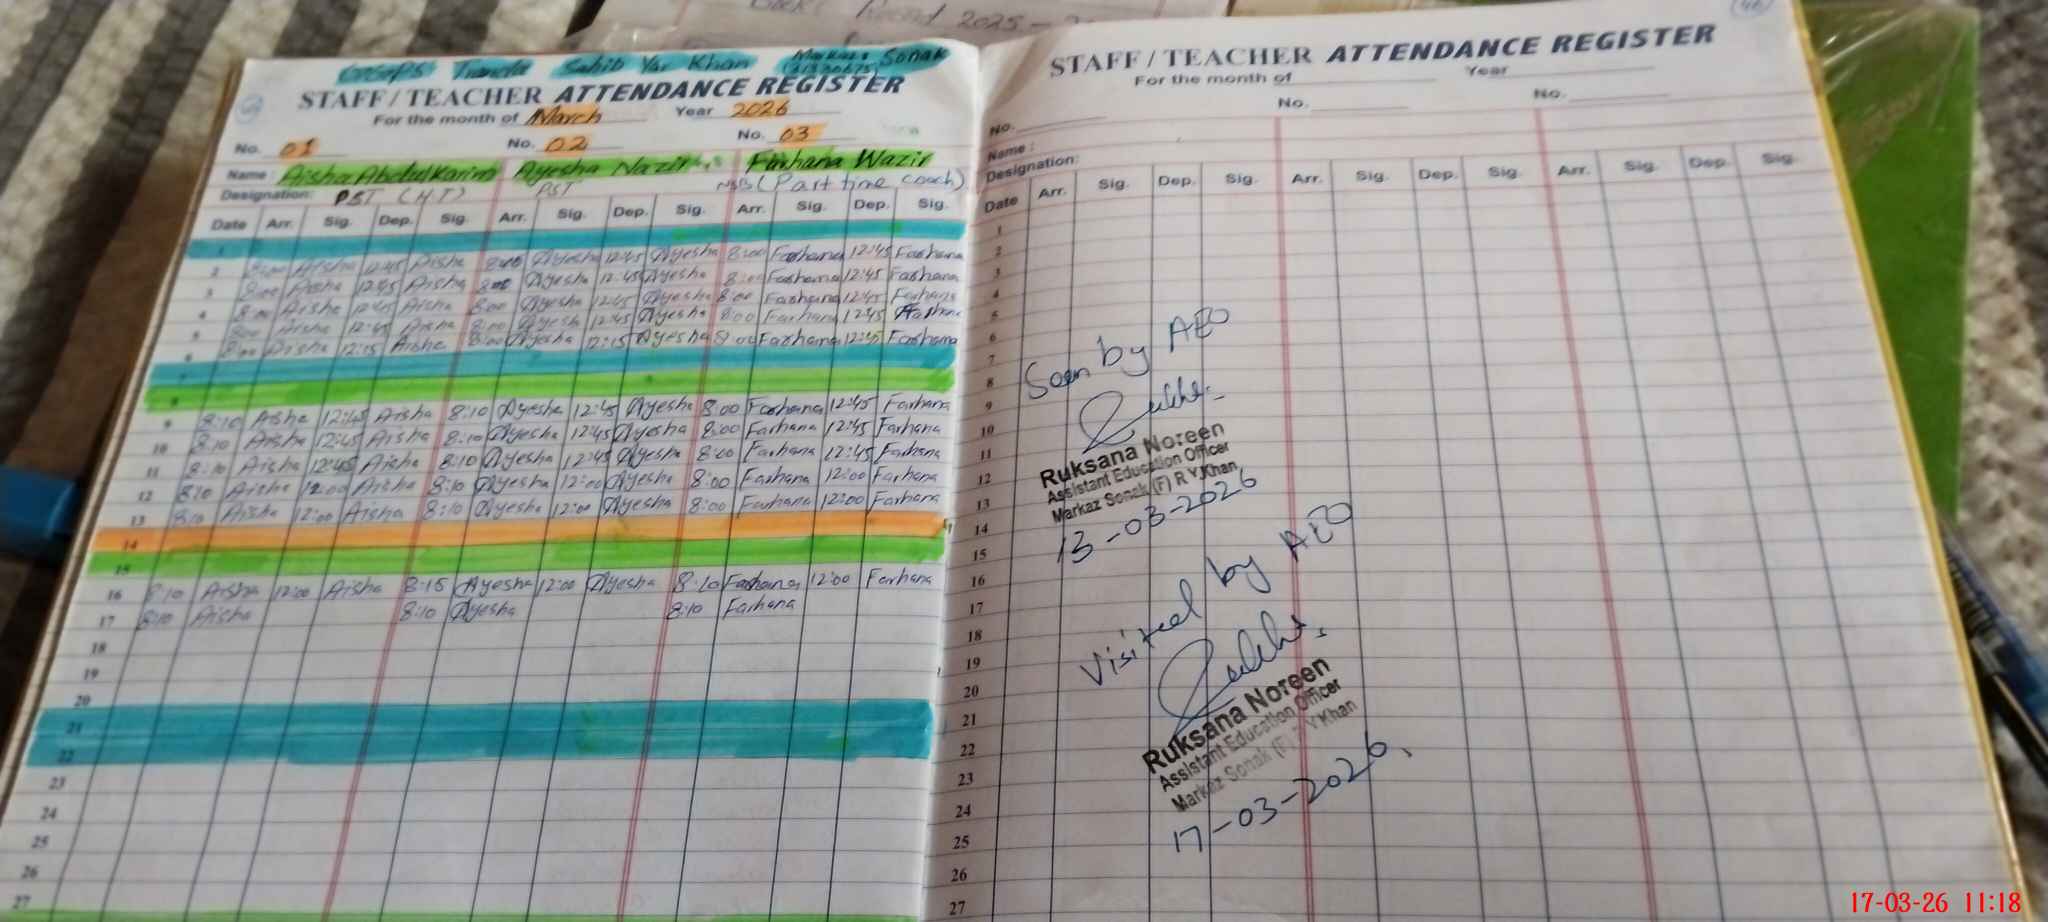 Record 2025-
GGPS Tranda Sahib Yar Khan Markaz: Sonak
STAFF / TEACHER ATTENDANCE REGISTER
For the month of March Year 2026
No. 01 No. 02 No. 03
Name : Aisha Abdul Karim Ayesha Nazir Farhana Wazir
Designation: PST (H.T) PST NSB (Part time coach)
Date Arr. Sig. Dep. Sig. Arr. Sig. Dep. Sig. Arr. Sig. Dep. Sig.
1
2 8:00 Aisha 12:45 Aisha 8:00 Ayesha 12:45 Ayesha 8:00 Farhana 12:45 Farhana
3 8:00 Aisha 12:45 Aisha 8:00 Ayesha 12:45 Ayesha 8:00 Farhana 12:45 Farhana
4 8:00 Aisha 12:45 Aisha 8:00 Ayesha 12:45 Ayesha 8:00 Farhana 12:45 Farhana
5 8:00 Aisha 12:45 Aisha 8:00 Ayesha 12:45 Ayesha 8:00 Farhana 12:45 Farhana
6 8:00 Aisha 12:15 Aisha 8:00 Ayesha 12:15 Ayesha 8:00 Farhana 12:45 Farhana
7
8
9 8:10 Aisha 12:45 Aisha 8:10 Ayesha 12:45 Ayesha 8:00 Farhana 12:45 Farhana
10 8:10 Aisha 12:45 Aisha 8:10 Ayesha 12:45 Ayesha 8:00 Farhana 12:45 Farhana
11 8:10 Aisha 12:45 Aisha 8:10 Ayesha 12:45 Ayesha 8:00 Farhana 12:45 Farhana
12 8:10 Aisha 12:00 Aisha 8:10 Ayesha 12:00 Ayesha 8:00 Farhana 12:00 Farhana
13 8:10 Aisha 12:00 Aisha 8:10 Ayesha 12:00 Ayesha 8:00 Farhana 12:00 Farhana
14
15
16 8:10 Aisha 12:00 Aisha 8:15 Ayesha 12:00 Ayesha 8:10 Farhana 12:00 Farhana
17 8:10 Aisha 8:10 Ayesha 8:10 Farhana
18
19
20
21
22
23
24
25
26
27
46
STAFF / TEACHER ATTENDANCE REGISTER
For the month of Year
No. No. No.
Name :
Designation:
Date Arr. Sig. Dep. Sig. Arr. Sig. Dep. Sig. Arr. Sig. Dep. Sig.
1
2
3
4
5
6
7
8
9
10
11
12
13
14
15
16
17
18
19
20
21
22
23
24
25
26
27
Seen by AEO
Ruksana Noreen
Assistant Education Officer
Markaz Sonak (F) R Y Khan
13-03-2026
Visited by AEO
Ruksana Noreen
Assistant Education Officer
Markaz Sonak (F) R Y Khan
17-03-2026.
17-03-26 11:18